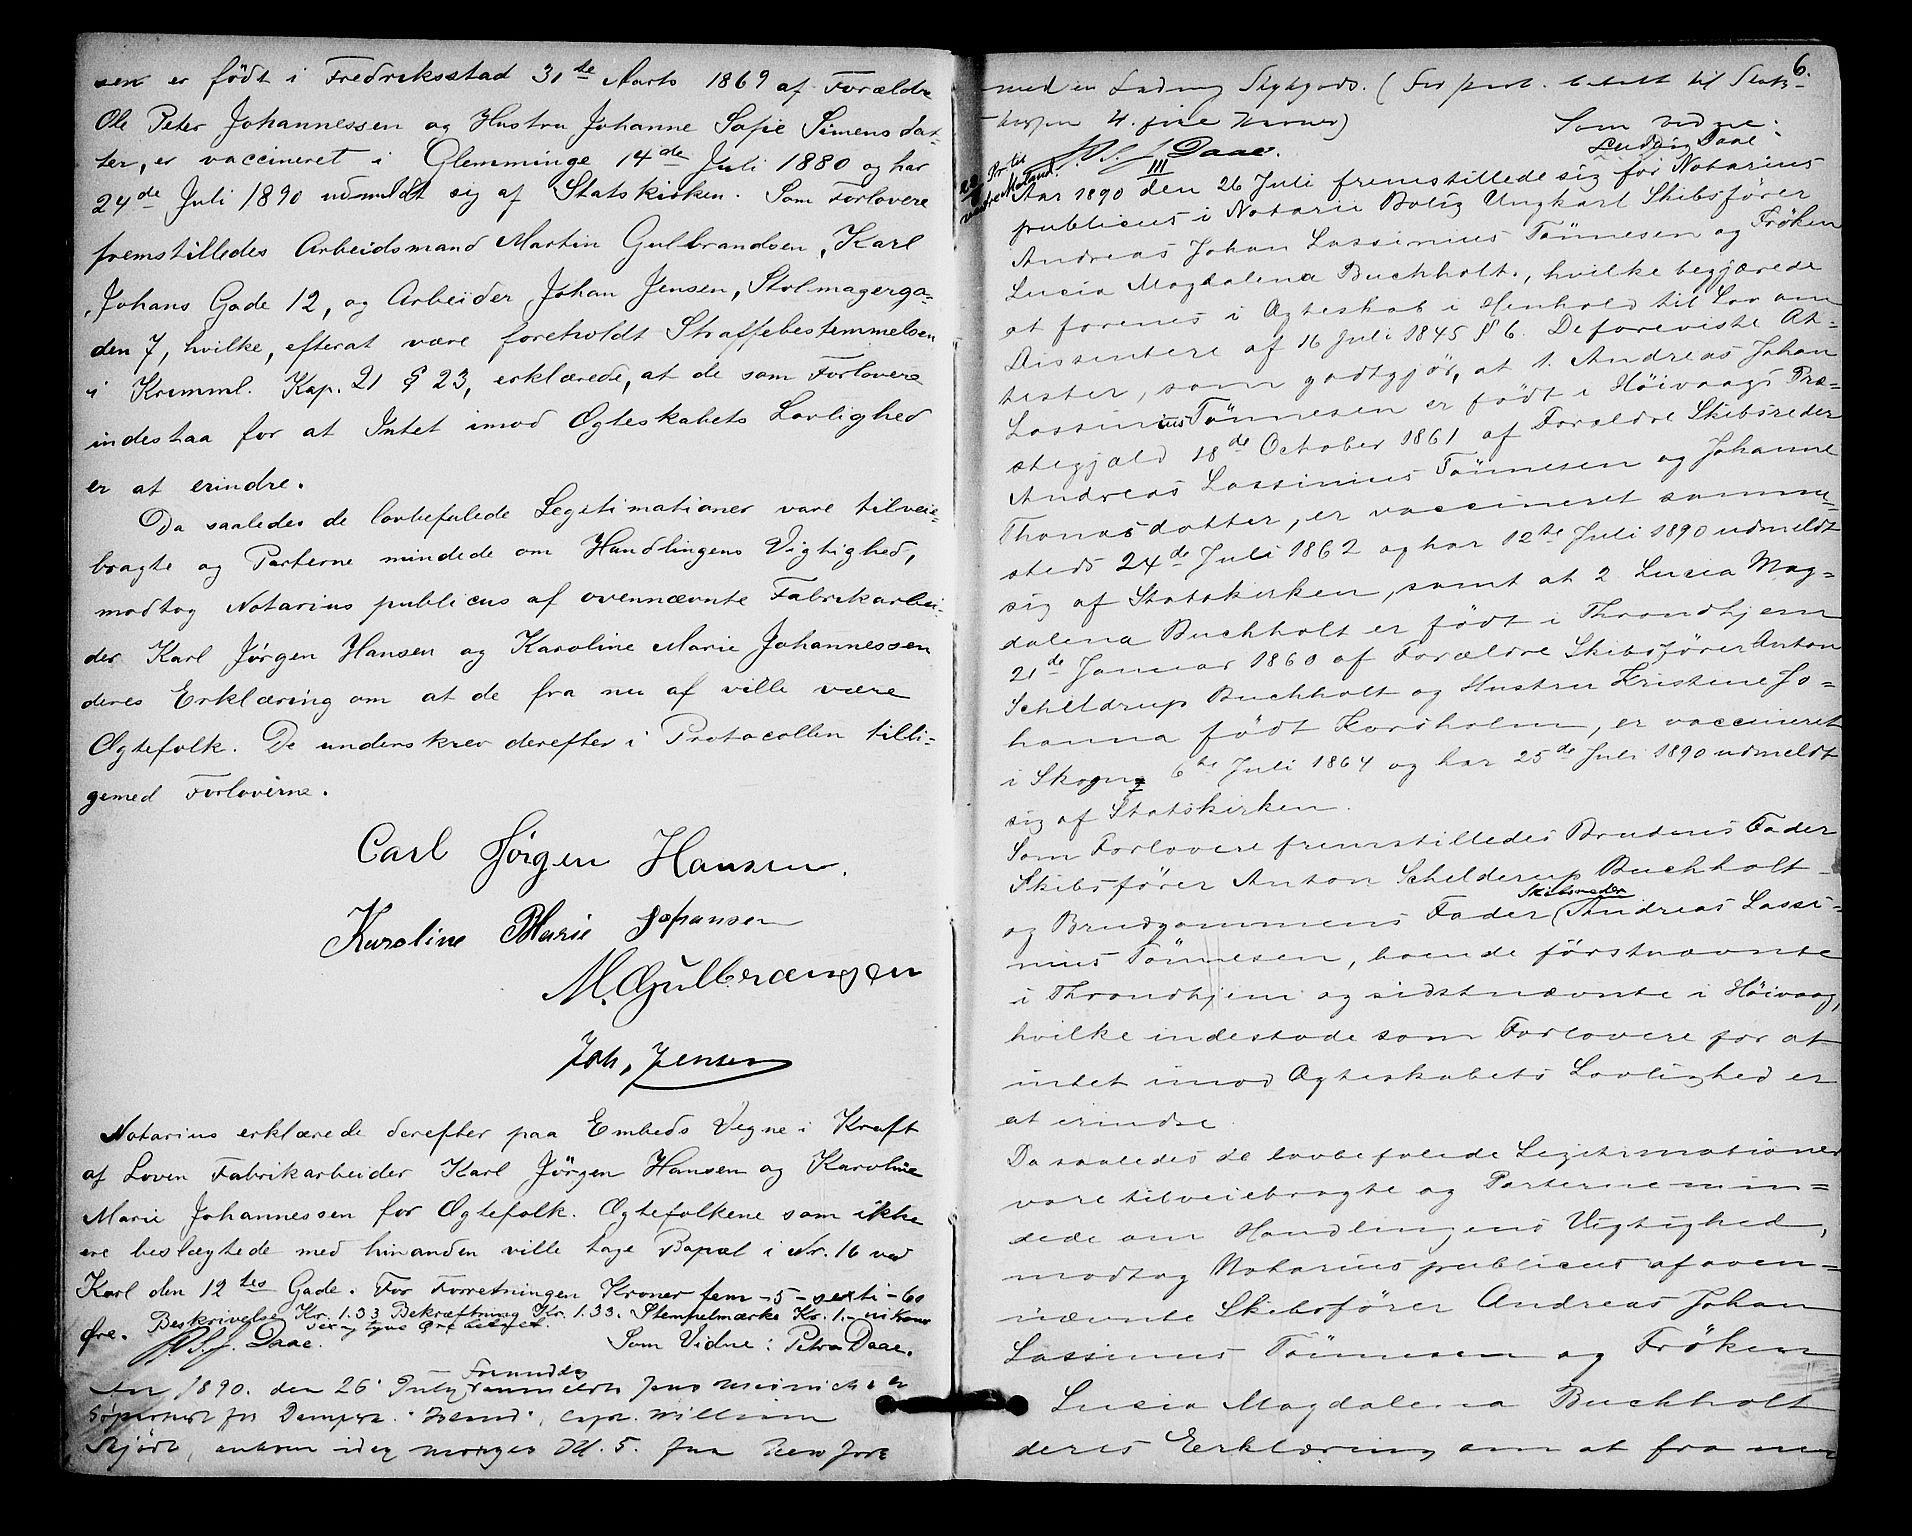 sen er født i Fredriksstad 31te Marts 1869 af Forældre
Ole Peter Johannessen og Hustru Johanne Sofie Simensdat-
ter, er vaccineret i Glemminge 14de Juli 1880 og har
24de Juli 1890 udmeldt sig af Statskirken. Som Forlovere
fremstilledes Arbeidsmand Martin Gulbrandsen, Karl
Johans Gade 12, og Arbeider Johan Jensen, Stolmagerga-
den 7, hvilke, efterat være foreholdt Straffebestemmelsen
i Kriminl. Kap. 21 § 23, erklærede, at de som Forlovere
indestaa for at Intet imod Ægteskabets Lovlighed
er at erindre.
Da saaledes de lovbefalede Legitimationer vare tilveie-
bragte og Parterne mindede om Handlingens Vigtighed,
modtog Notarius publicus af ovennævnte Fabrikarbei-
der Karl Jørgen Hansen og Karoline Marie Johannessen
deres Erklæring om at de fra nu af ville være
Ægtefolk. De underskrev derefter i Protocollen tilli-
gemed Forloverne.
Carl Jørgen Hansen.
Karoline Marie Johansen
M. Gulbrangsen
Joh, Jensen
Notarius erklærede derefter paa Embeds Vegne i Kraft
af Loven Fabrikarbeider Karl Jörgen Hansen og Karoline
Marie Johannessen for Ægtefolk. Ægtefolkene som ikke
ere beslægtede med hinanden ville tage Bopæl i Nr. 16 ved
Karl den 12tes Gade. For Forretningen Kroner fem -5- sexti -60
Øre. Beskrivelse Kr. 1.33 Bekræftning Kr. 1.33. Stempelmærke Kr. 1.-
Daae. Som Vidne: Petra Daae.
Aar 1890. den 26 July
for Dampsk. capt. William
5. fra New York
6.
med en Ladning Stykgods.
Som vidne:
Daae. Ludvig Daae
III
Aar 1890 den 26 Juli fremstillede sig for Notarius
publicus i Notarie Bolig Ungkarl Skibsfører
Andreas Johan Lassinius Tönnesen og Frøken
Lucia Magdalena Buchholt, hvilke begjærede
at forenes i Ægteskab i Henhold til Lov om
Dissentere af 16 Juli 1845 § 6. De foreviste At-
tester, som godtgjør, at 1. Andreas Johan
Lassinius Tönnesen er født i Höivaags Præ-
stegjæld 18de October 1861 af Forældre Skibsreder
Andreas Lassinius Tönnesen og Johanne
Thomasdatter, er vaccineret samme-
steds 24de Juli 1862 og har 12te Juli 1890 udmeldt
sig af Statskirken, samt at 2. Lucia Mag-
dalena Buchholt er født i Throndhjem
21de Januar 1860 af Forældre Skibsfører Anton
Scheldrup Buchholt og Hustru Kristine Jo-
hanna født Kordholm, er vaccineret
i Skogn 6te Juli 1864 og har 25de Juli 1890 udmeldt
sig af Statskirken.
Som Forlovere fremstilledes Brudens Fader
Skibsfører Anton Schelderup Buchholt
og Brudgommens Fader Skibsreder Andreas Lassi-
nius Tönnesen, boende førstnævnte
i Throndhjem og sidstnævnte i Höivaag,
hvilke indestode som Forlovere for at
intet imod Ægteskabets Lovlighed er
at erindre.
Da saaledes de lovbefalede Legitimationer
vare tilveiebragte og Parterne min-
dede om Handlingens Vigtighed,
modtog Notarius publicus af oven-
nævnte Skibsfører Andreas Johan
Lassinius Tönnesen og Frøken
Lucia Magdalena Buchholt
deres Erklæring om at fra nu